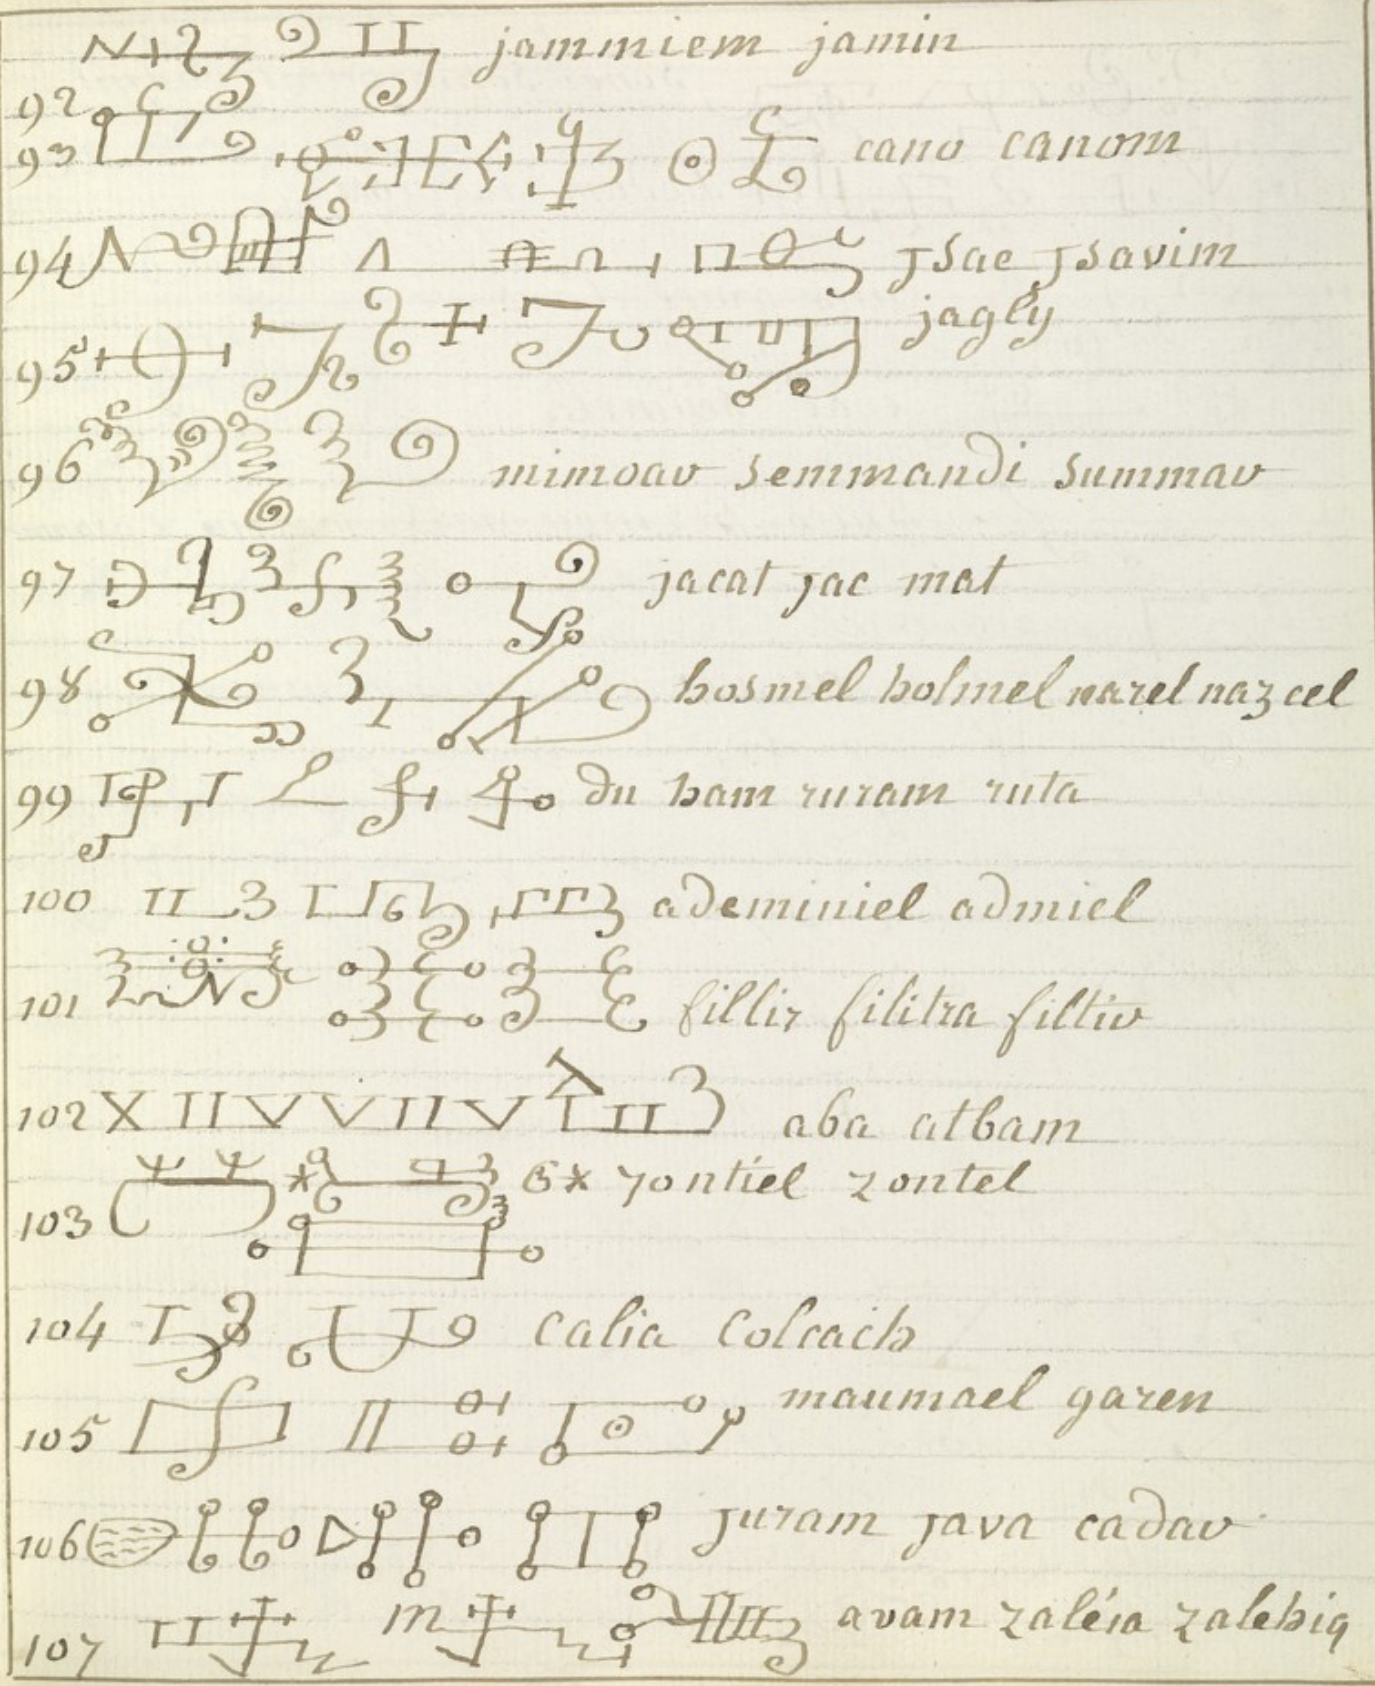 92 jammiem jamin
93 cano canom
94 jsae jsavim
95 jagly
96 mimoav semmandi summav
97 jacat jac mat
98 hosmel holmel narel nazcel
99 du ham ruram ruta
100 ademiniel admiel
101 fillir filitra filtiv
102 X II V V II V aba atbam
103 zontiel zontel
104 calia colcach
105 maumael garen
106 juram java cadav
107 avam zaléia zalehiq